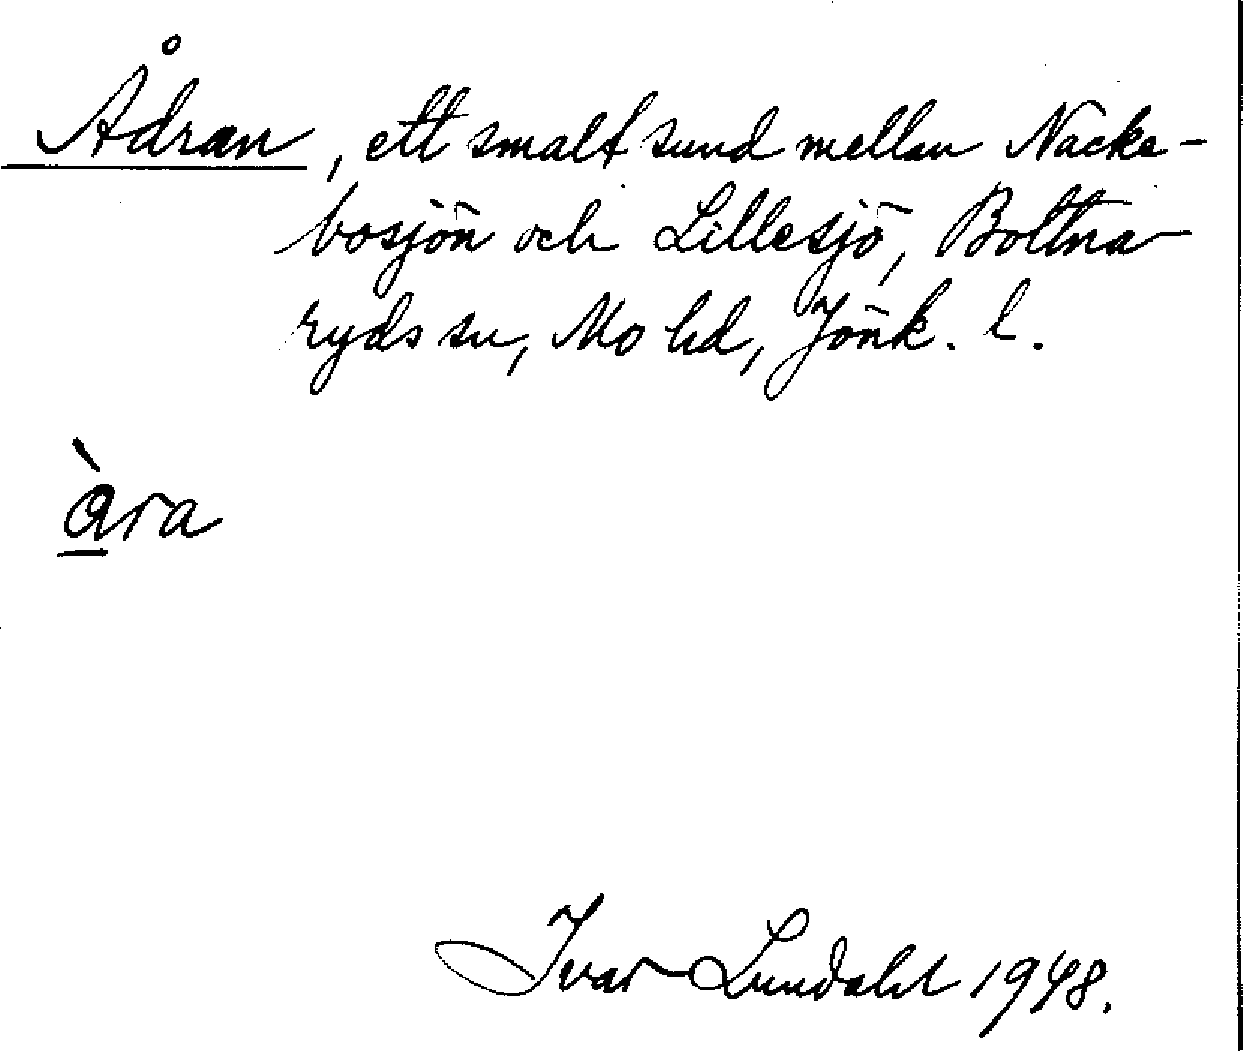 Ådran, ett smalt sund mellan Nacke-
bosjön och Lillesjö, Bottna-
ryds sn, Mo hd, Jönk. l.
àra
Ivar Lundahl 1948.